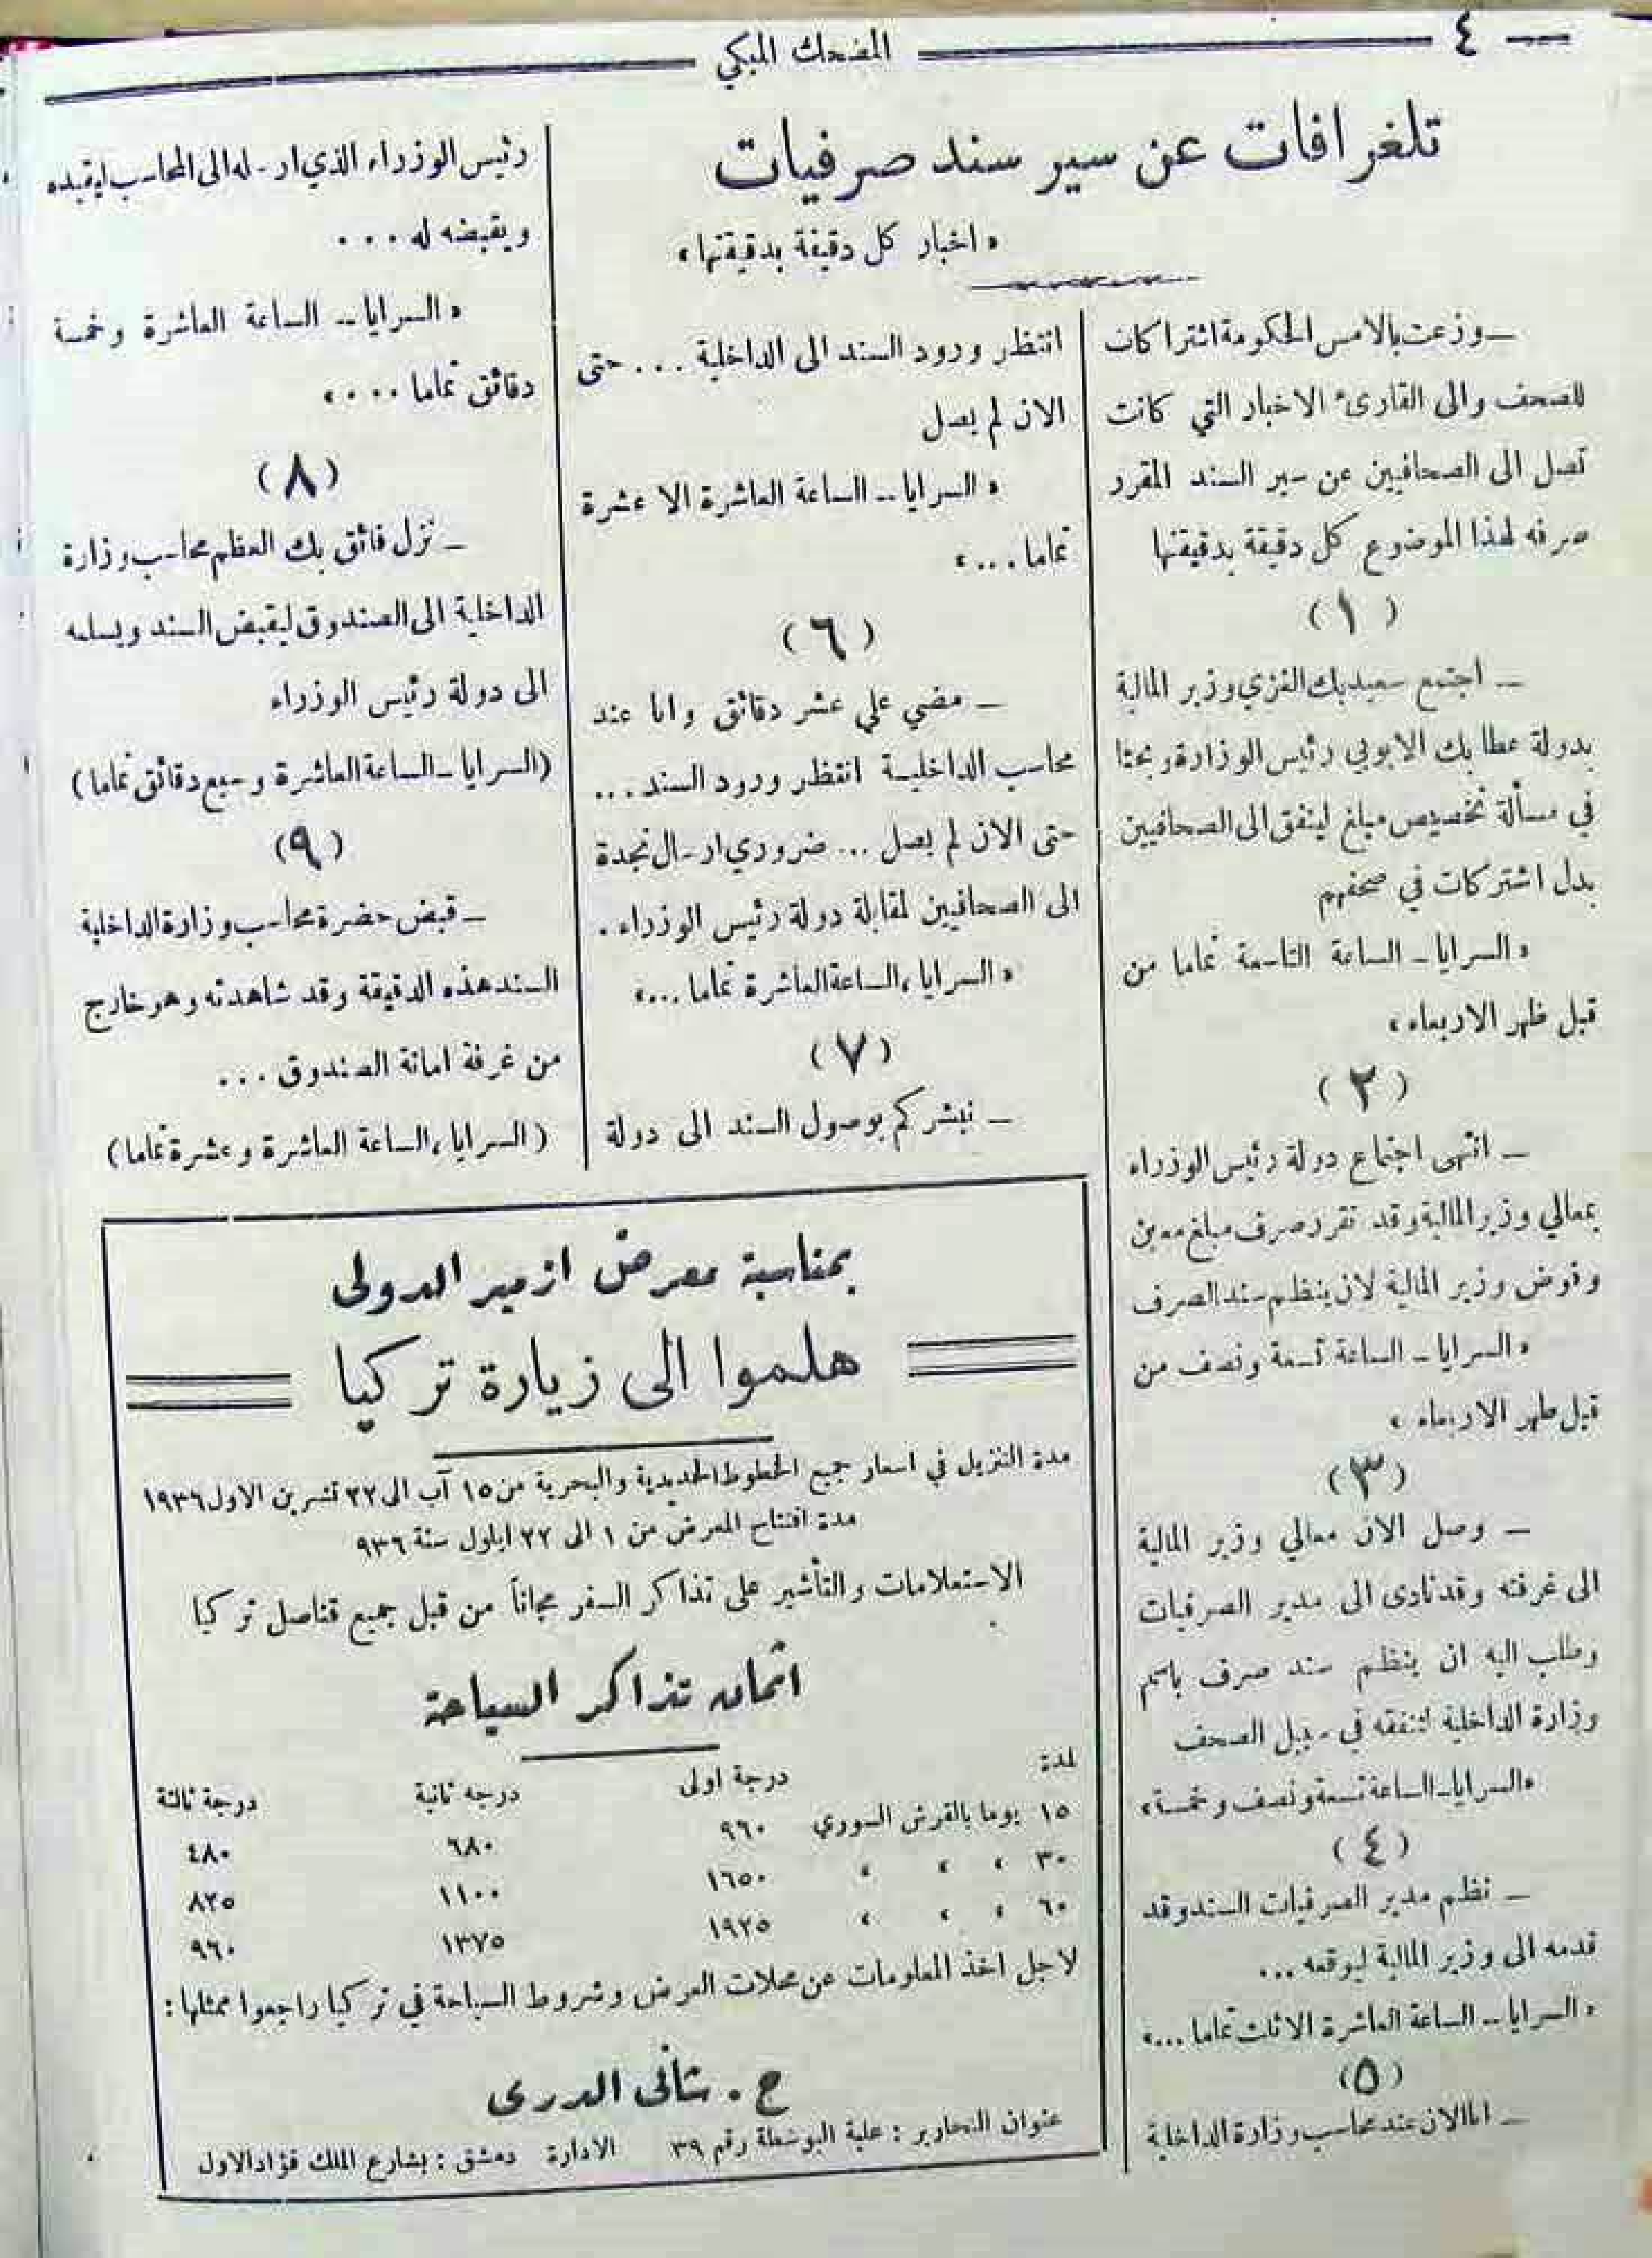 — ٤
المضحك المبكي
تلغرافات عن سير سند صرفيات
« اخبار كل دقيقة بدقيقتها »
ــ وزعت بالامس الحكومة اشتراكات
للصحف والى القارىء الاخبار التي كانت
تصل الى الصحافيين عن سير السند المقرر
صرفه لهذا الموضوع كل دقيقة بدقيقتها
( ١ )
ــ اجتمع سعيد بك الغزي وزير المالية
بدولة عطا بك الايوبي رئيس الوزارة وبحثا
في مسألة تخصيص مبلغ لينفق الى الصحافيين
بدل اشتركات في صحفهم
« السرايا ــ الساعة التاسعة تماما من
قبل ظهر الاربعاء »
( ٢ )
ــ انتهى اجتماع دولة رئيس الوزراء
بمعالي وزير المالية وقد تقرر صرف مبلغ معين
وفوض وزير المالية لان ينظم سند الصرف
« السرايا ــ الساعة تسعة ونصف من
قبل ظهر الاربعاء »
( ٣ )
ــ وصل الان معالي وزير المالية
الى غرفته وقد نادى الى مدير الصرفيات
وطلب اليه ان ينظم سند صرف باسم
وزارة الداخلية لتنفقه في سبيل الصحف
« السرايا ــ الساعة تسعة ونصف وخمسة »
( ٤ )
ــ نظم مدير الصرفيات السند وقد
قدمه الى وزير المالية ليوقعه ...
« السرايا ــ الساعة العاشرة الا ثلث تماما ... »
( ٥ )
ــ انا الان عند محاسب وزارة الداخلية
انتظر ورود السند الى الداخلية ... حتى
الان لم يصل
« السرايا ــ الساعة العاشرة الا عشرة
تماما ... »
( ٦ )
ــ مضي علي عشر دقائق وانا عند
محاسب الداخلية انتظر ورود السند ...
حتى الان لم يصل ... ضروري ارسال نجدة
الى الصحافيين لمقابلة دولة رئيس الوزراء .
« السرايا ، الساعة العاشرة تماما ... »
( ٧ )
ــ نبشركم بوصول السند الى دولة
رئيس الوزراء الذي ارسله الى المحاسب ليقيده
ويقبضه له ...
« السرايا ــ الساعة العاشرة وخمسة
دقائق تماما .... »
( ٨ )
ــ نزل فائق بك العظم محاسب وزارة
الداخلية الى الصندوق ليقبض السند ويسلمه
الى دولة رئيس الوزراء
(السرايا ــ الساعة العاشرة وسبع دقائق تماما)
( ٩ )
ــ قبض حضرة محاسب وزارة الداخلية
السند هذه الدقيقة وقد شاهدته وهو خارج
من غرفة امانة الصندوق ...
( السرايا ، الساعة العاشرة وعشرة تماما )
بمناسبة معرض ازمير الدولى
هلموا الى زيارة تركيا
مدة التنزيل في اسعار جميع الخطوط الحديدية والبحرية من ١٥ آب الى ٢٢ تشرين الاول ١٩٣٦
مدة افتتاح المعرض من ١ الى ٢٢ ايلول سنة ٩٣٦
الاستعلامات والتأشير على تذاكر السفر مجاناً من قبل جميع قناصل تركيا
اثمان تذاكر السياحة
لمدة درجة اولى درجه ثانية درجة ثالثة
١٥ يوما بالقرش السوري ٩٦٠ ٦٨٠ ٤٨٠
٣٠ « « « ١٦٥٠ ١١٠٠ ٨٢٥
٦٠ « « « ١٩٢٥ ١٣٧٥ ٩٦٠
لاجل اخذ المعلومات عن محلات العرض وشروط السياحة في تركيا راجعوا ممثلها :
ح . شانى الدرى
عنوان التحارير : علبة البوسطة رقم ٣٩ الادارة دمشق : بشارع الملك فؤاد الاول